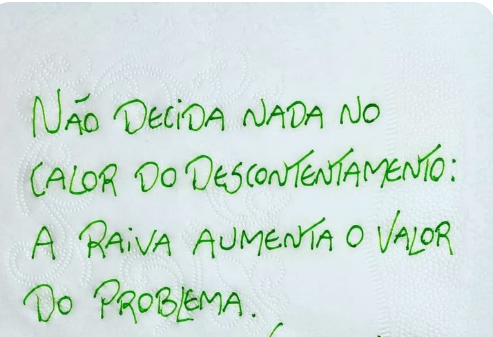 NÃO DECIDA NADA NO
CALOR DO DESCONTENTAMENTO:
A RAIVA AUMENTA O VALOR
DO PROBLEMA.